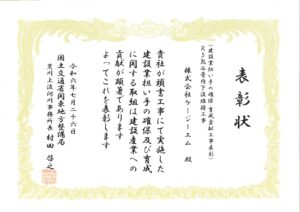 表彰状
(建設業担い手の確保・育成貢献工事表彰)
R5熊谷管内下流維持工事
株式会社ケージーエム 殿
貴社が頭書工事にて実施した
建設業担い手の確保及び育成
に関する取組は建設産業への
貢献が顕著であります
よってこれを表彰します
令和六年七月二十六日
国土交通省関東地方整備局
荒川上流河川事務所長 村田 啓之